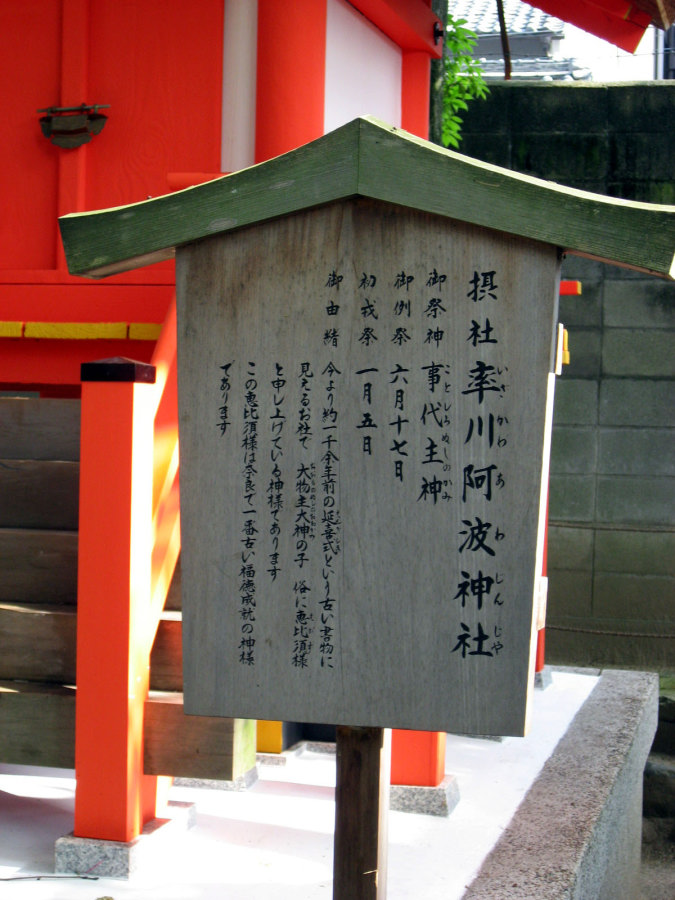 摂社 率川阿波神社
いさかわあわじんじゃ
御祭神 事代主神
ことしろぬしのかみ
御例祭 六月十七日
初戎祭 一月五日
御由緒 今より約一千余年前の延喜式という古い書物に
見えるお社で 大物主大神の子 俗に恵比須様
と申し上げている神様であります
この恵比須様は奈良で一番古い福徳成就の神様
であります